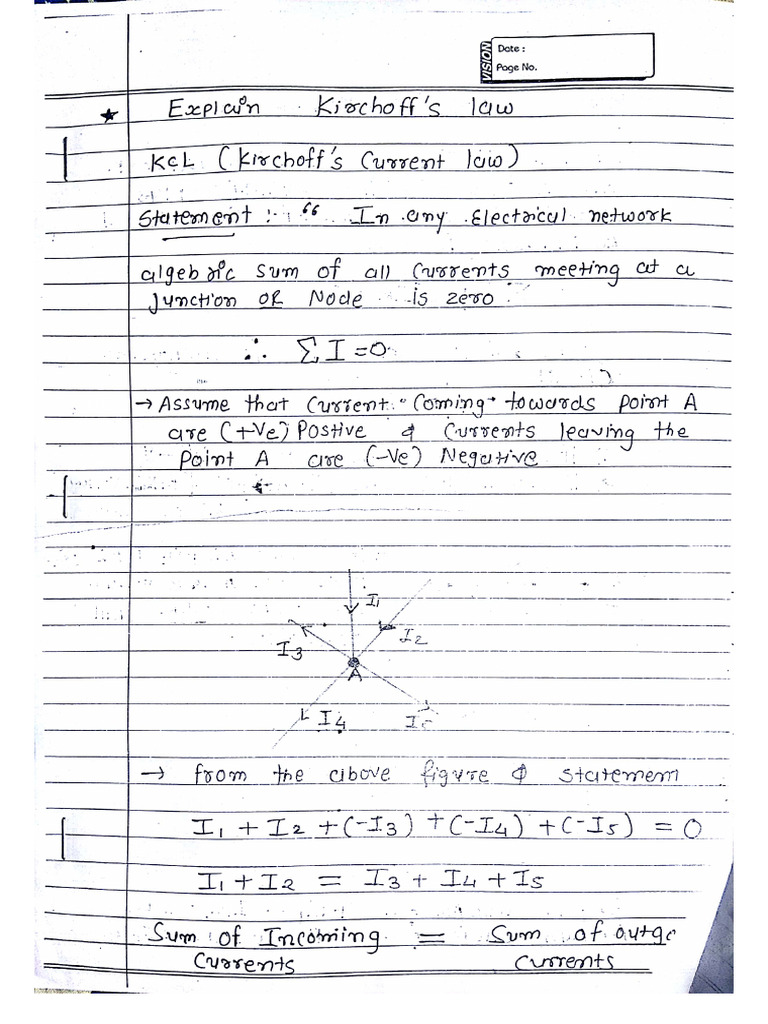 VISION
Date :
Page No.
★ Explain Kirchoff's law
KCL (Kirchoff's Current law)
Statement :- “ In any Electrical network
algebric sum of all currents meeting at a
Junction OR Node is zero
∴ ΣI = 0
→ Assume that current "coming" towards point A
are (+ve) Postive & currents leaving the
point A are (-ve) Negative
I1
I2
I3
A
I4
→ from the above figure & statement
I1 + I2 + (-I3) + (-I4) + (-I5) = 0
I1 + I2 = I3 + I4 + I5
Sum of Incoming = Sum of outgo
Currents Currents